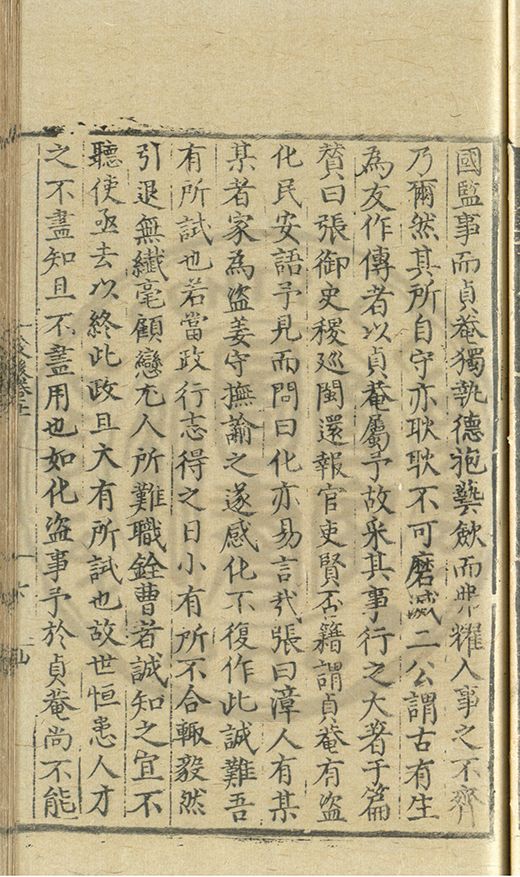 國監事而貞菴獨執德抱藝飲而弗耀人事之不齊
乃爾然其所自守亦耿耿不可磨滅二公謂古有生
為友作傳者以貞菴屬予故采其事行之大著于篇
賛曰張御史稷廵閩還報官吏賢否籍謂貞菴有盗
化民安語予見而問曰化亦易言㢤張曰漳人有某
某者家為盗姜守撫諭之遂感化不復作此誠難吾
有所試也若當政行志得之日小有所不合輙毅然
引退無纎毫顧戀尤人所難職銓曹者誠知之宜不
聽使亟去以終此政且大有所試也故世恒患人才
之不盡知且不盡用也如化盗事予於貞菴尚不能